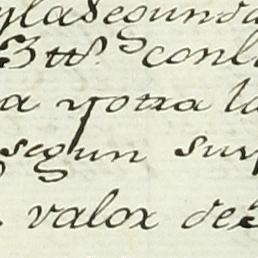 yla segunda
3 tt.s conl
a y otra la
segun su
valor de